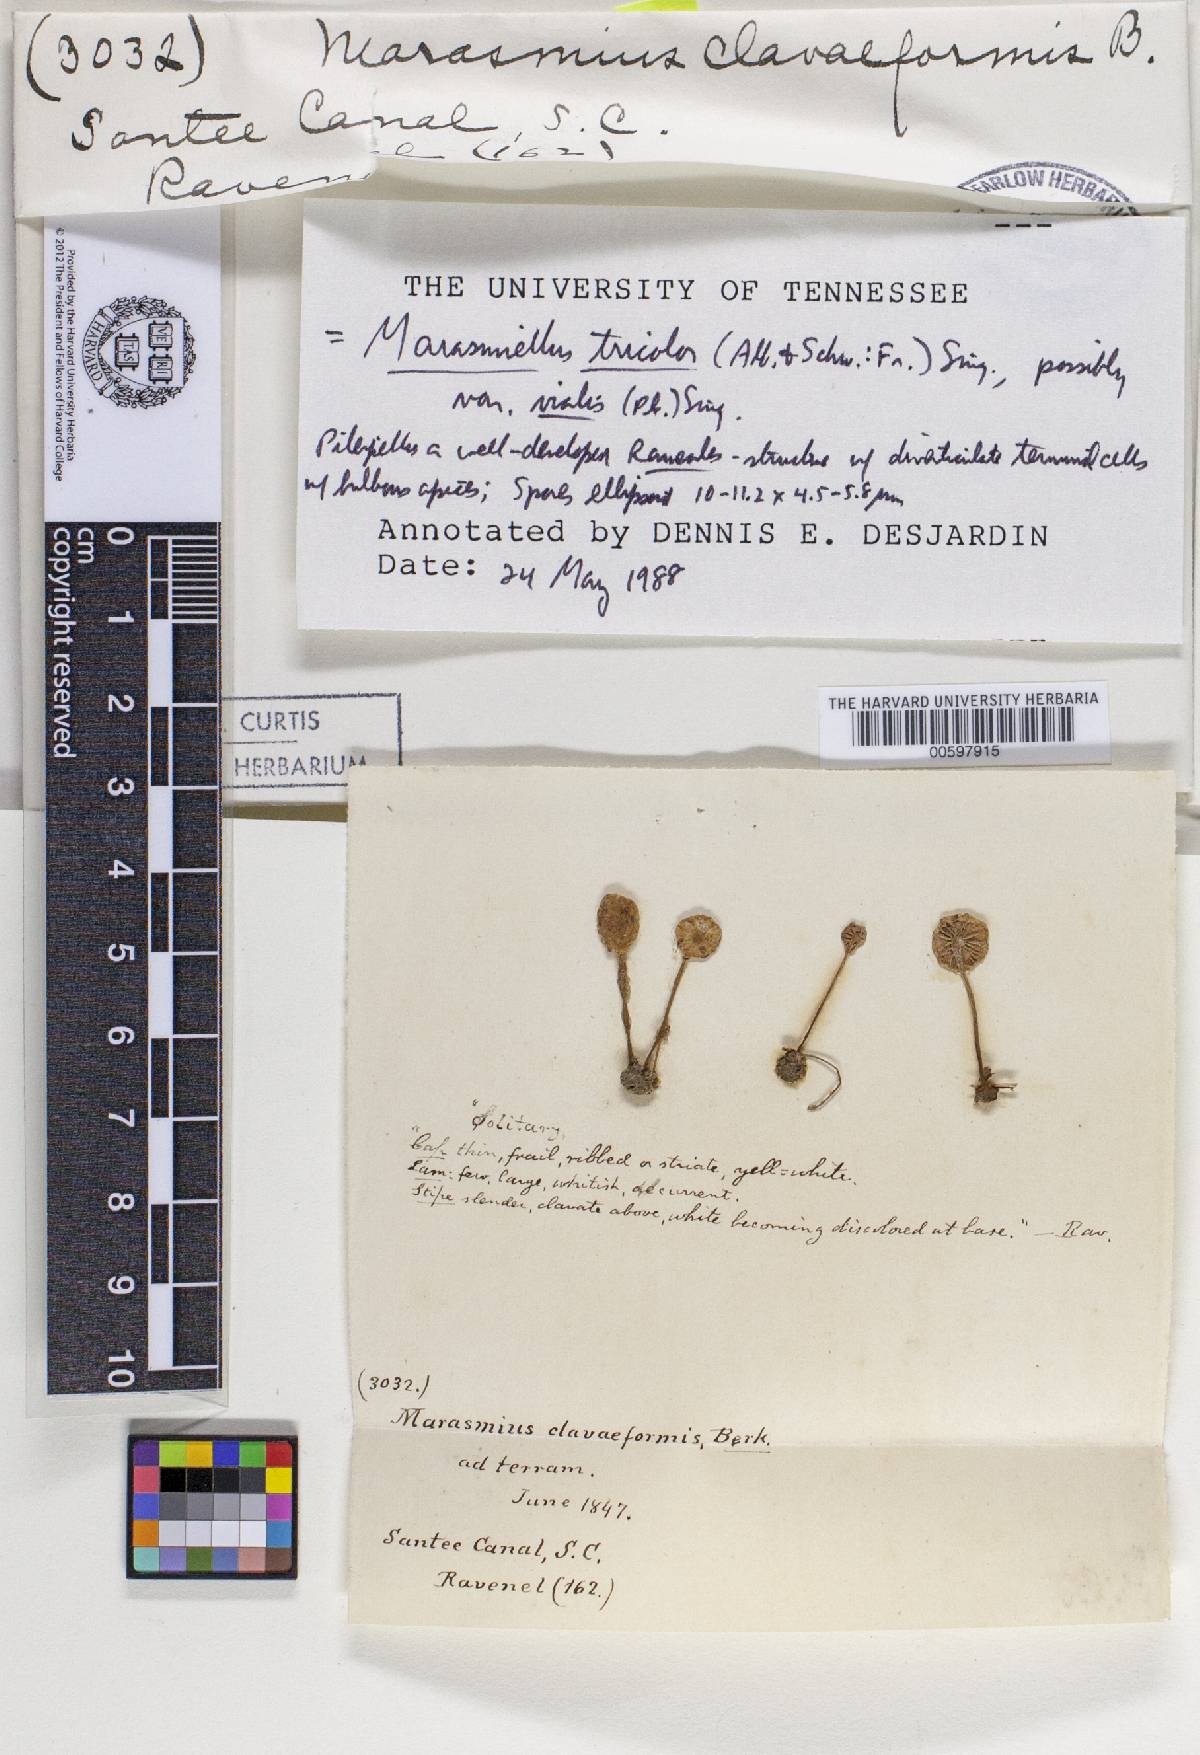 (3032) Marasmius clavaeformis B.
Santee Canal, S.C.
Raven
(162)
FARLOW HERBAR
Provided by the Harvard University Herbaria
© 2012 The President and Fellows of Harvard College
HARVARD
VE RI TAS
THE UNIVERSITY OF TENNESSEE
= Marasmiellus tricolor (Alb. & Schw.: Fr.) Sing., possibly
var. vialis (Pk.) Sing.
Pileipellis a well-developed Rameales-structure w/ diverticulate terminal cells
w/ bulbous apices; Spores ellipsoid 10-11.2 x 4.5-5.8 µm
Annotated by DENNIS E. DESJARDIN
Date: 24 May 1988
0 1 2 3 4 5 6 7 8 9 10
cm
copyright reserved
CURTIS
HERBARIUM
THE HARVARD UNIVERSITY HERBARIA
00597915
"Solitary,
"Cap thin, frail, ribbed or striate, yell=white.
Lam: few, large, whitish, decurrent.
Stipe slender, clavate above, white becoming discolored at base." — Rav.
(3032.)
Marasmius clavaeformis, Berk.
ad terram.
June 1847.
Santee Canal, S.C.
Ravenel (162.)